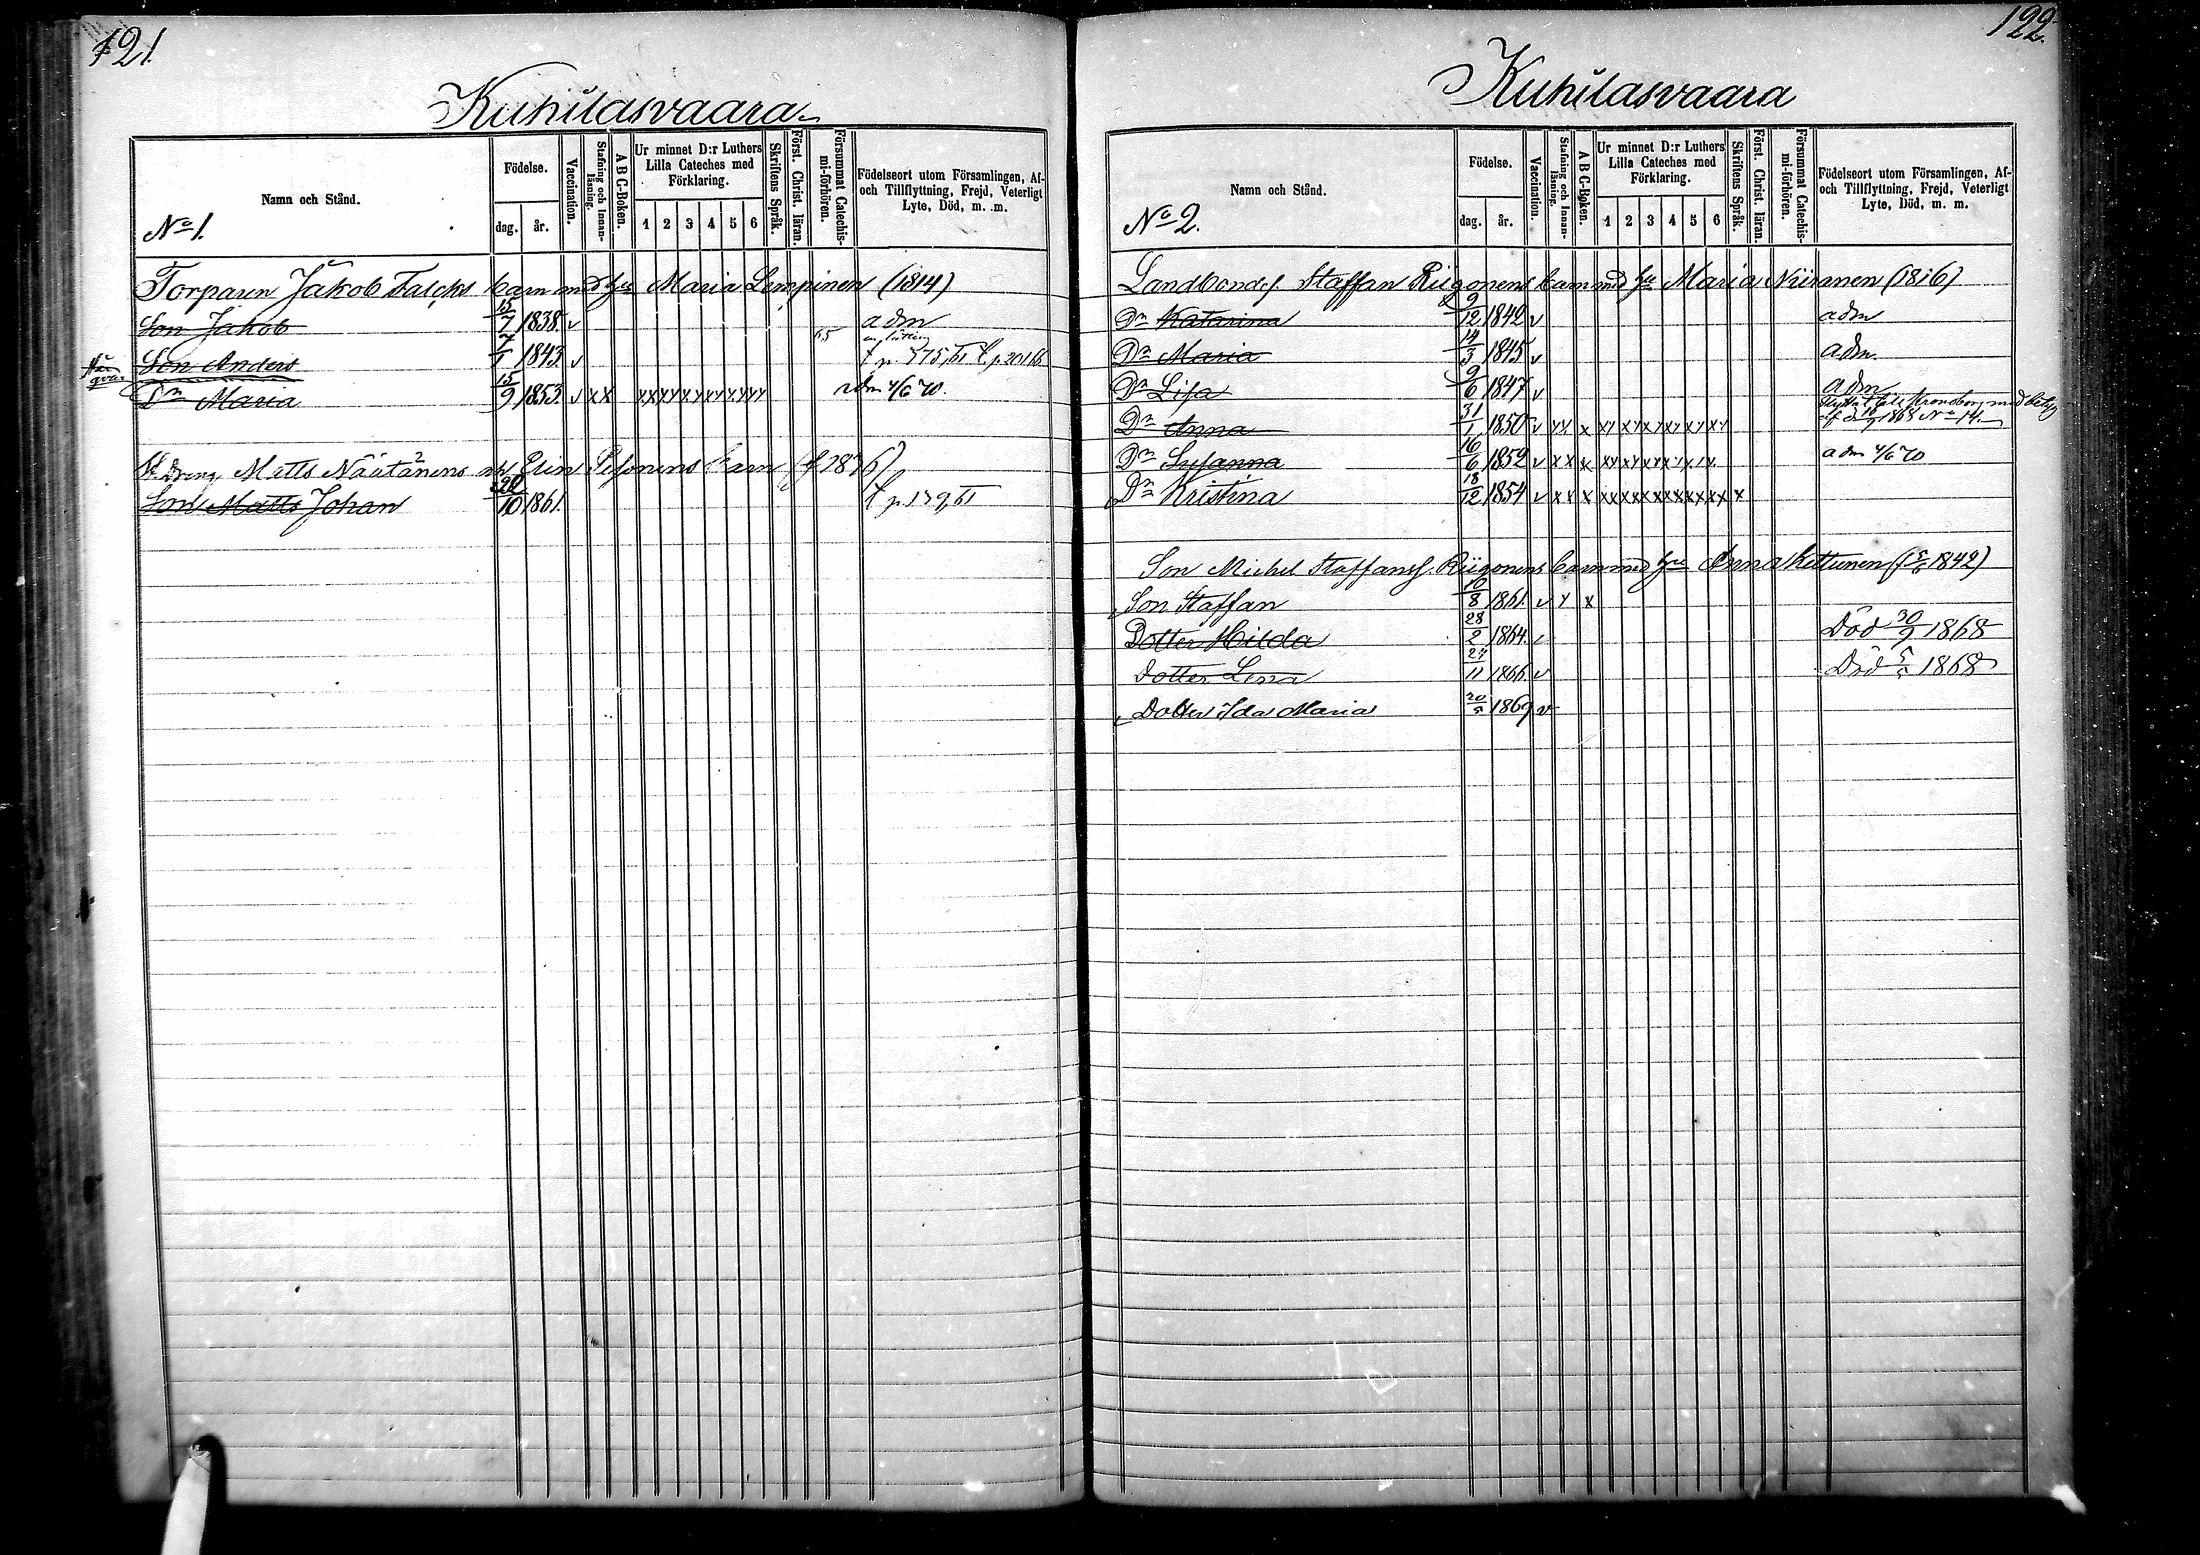 121.
Kuhilasvaara
Namn och Stånd.
No 1.
Födelse.
dag.
år.
Vaccination.
Stafning och Innanläsning.
A B C-Boken.
Ur minnet D:r Luthers
Lilla Cateches med
Förklaring.
1 2 3 4 5 6
Skriftens Språk.
Först. Christ. läran.
Försummat Catechismi-förhören.
Födelseort utom Församlingen, Af-
och Tillflyttning, Frejd, Veterligt
Lyte, Död, m. m.
Torparen Jakob Falcks barn med hu Maria Lempinen (1814)
Son Jakob 15/7 1838. v adm
Son Anders 7/1 1843. v 65
Dr Maria 15/9 1853. v x x x x x x x x x x x x x adm 4/6 70.
Dreng Matts Näätänens Elin Pesonens barn
Son Matts Johan 20/10 1861.
122.
Kuhilasvaara
Namn och Stånd.
No 2.
Födelse.
dag.
år.
Vaccination.
Stafning och Innanläsning.
A B C-Boken.
Ur minnet D:r Luthers
Lilla Cateches med
Förklaring.
1 2 3 4 5 6
Skriftens Språk.
Först. Christ. läran.
Försummat Catechismi-förhören.
Födelseort utom Församlingen, Af-
och Tillflyttning, Frejd, Veterligt
Lyte, Död, m. m.
Landbond. Staffan Riigonens barn med hu Maria Niiranen (1816)
Dr Katarina 9/12 1842 v adm
Dr Maria 14/3 1845 v adm.
Dr Lisa 9/6 1847 v adm
Dr Anna 31/1 1850 v x x x x x x x x x x x x x x x Flyttat till Kronoborg med betyg
af 1868 No 14.
Dr Susanna 16/6 1852 v x x x x x x x x x x x x x x adm 4/6 70
Dr Kristina 18/12 1854 v x x x x x x x x x x x x x x x x
Son Michel Staffans. Riigonens barn med hu Anna Kettunen (1842)
Son Staffan 10/8 1861. v x x
Dotter Hilda 28/2 1864. v Död 30/9 1868
Dotter Lena 27/11 1866 v Död 1868
Dotter Ida Maria 20/5 1869 v